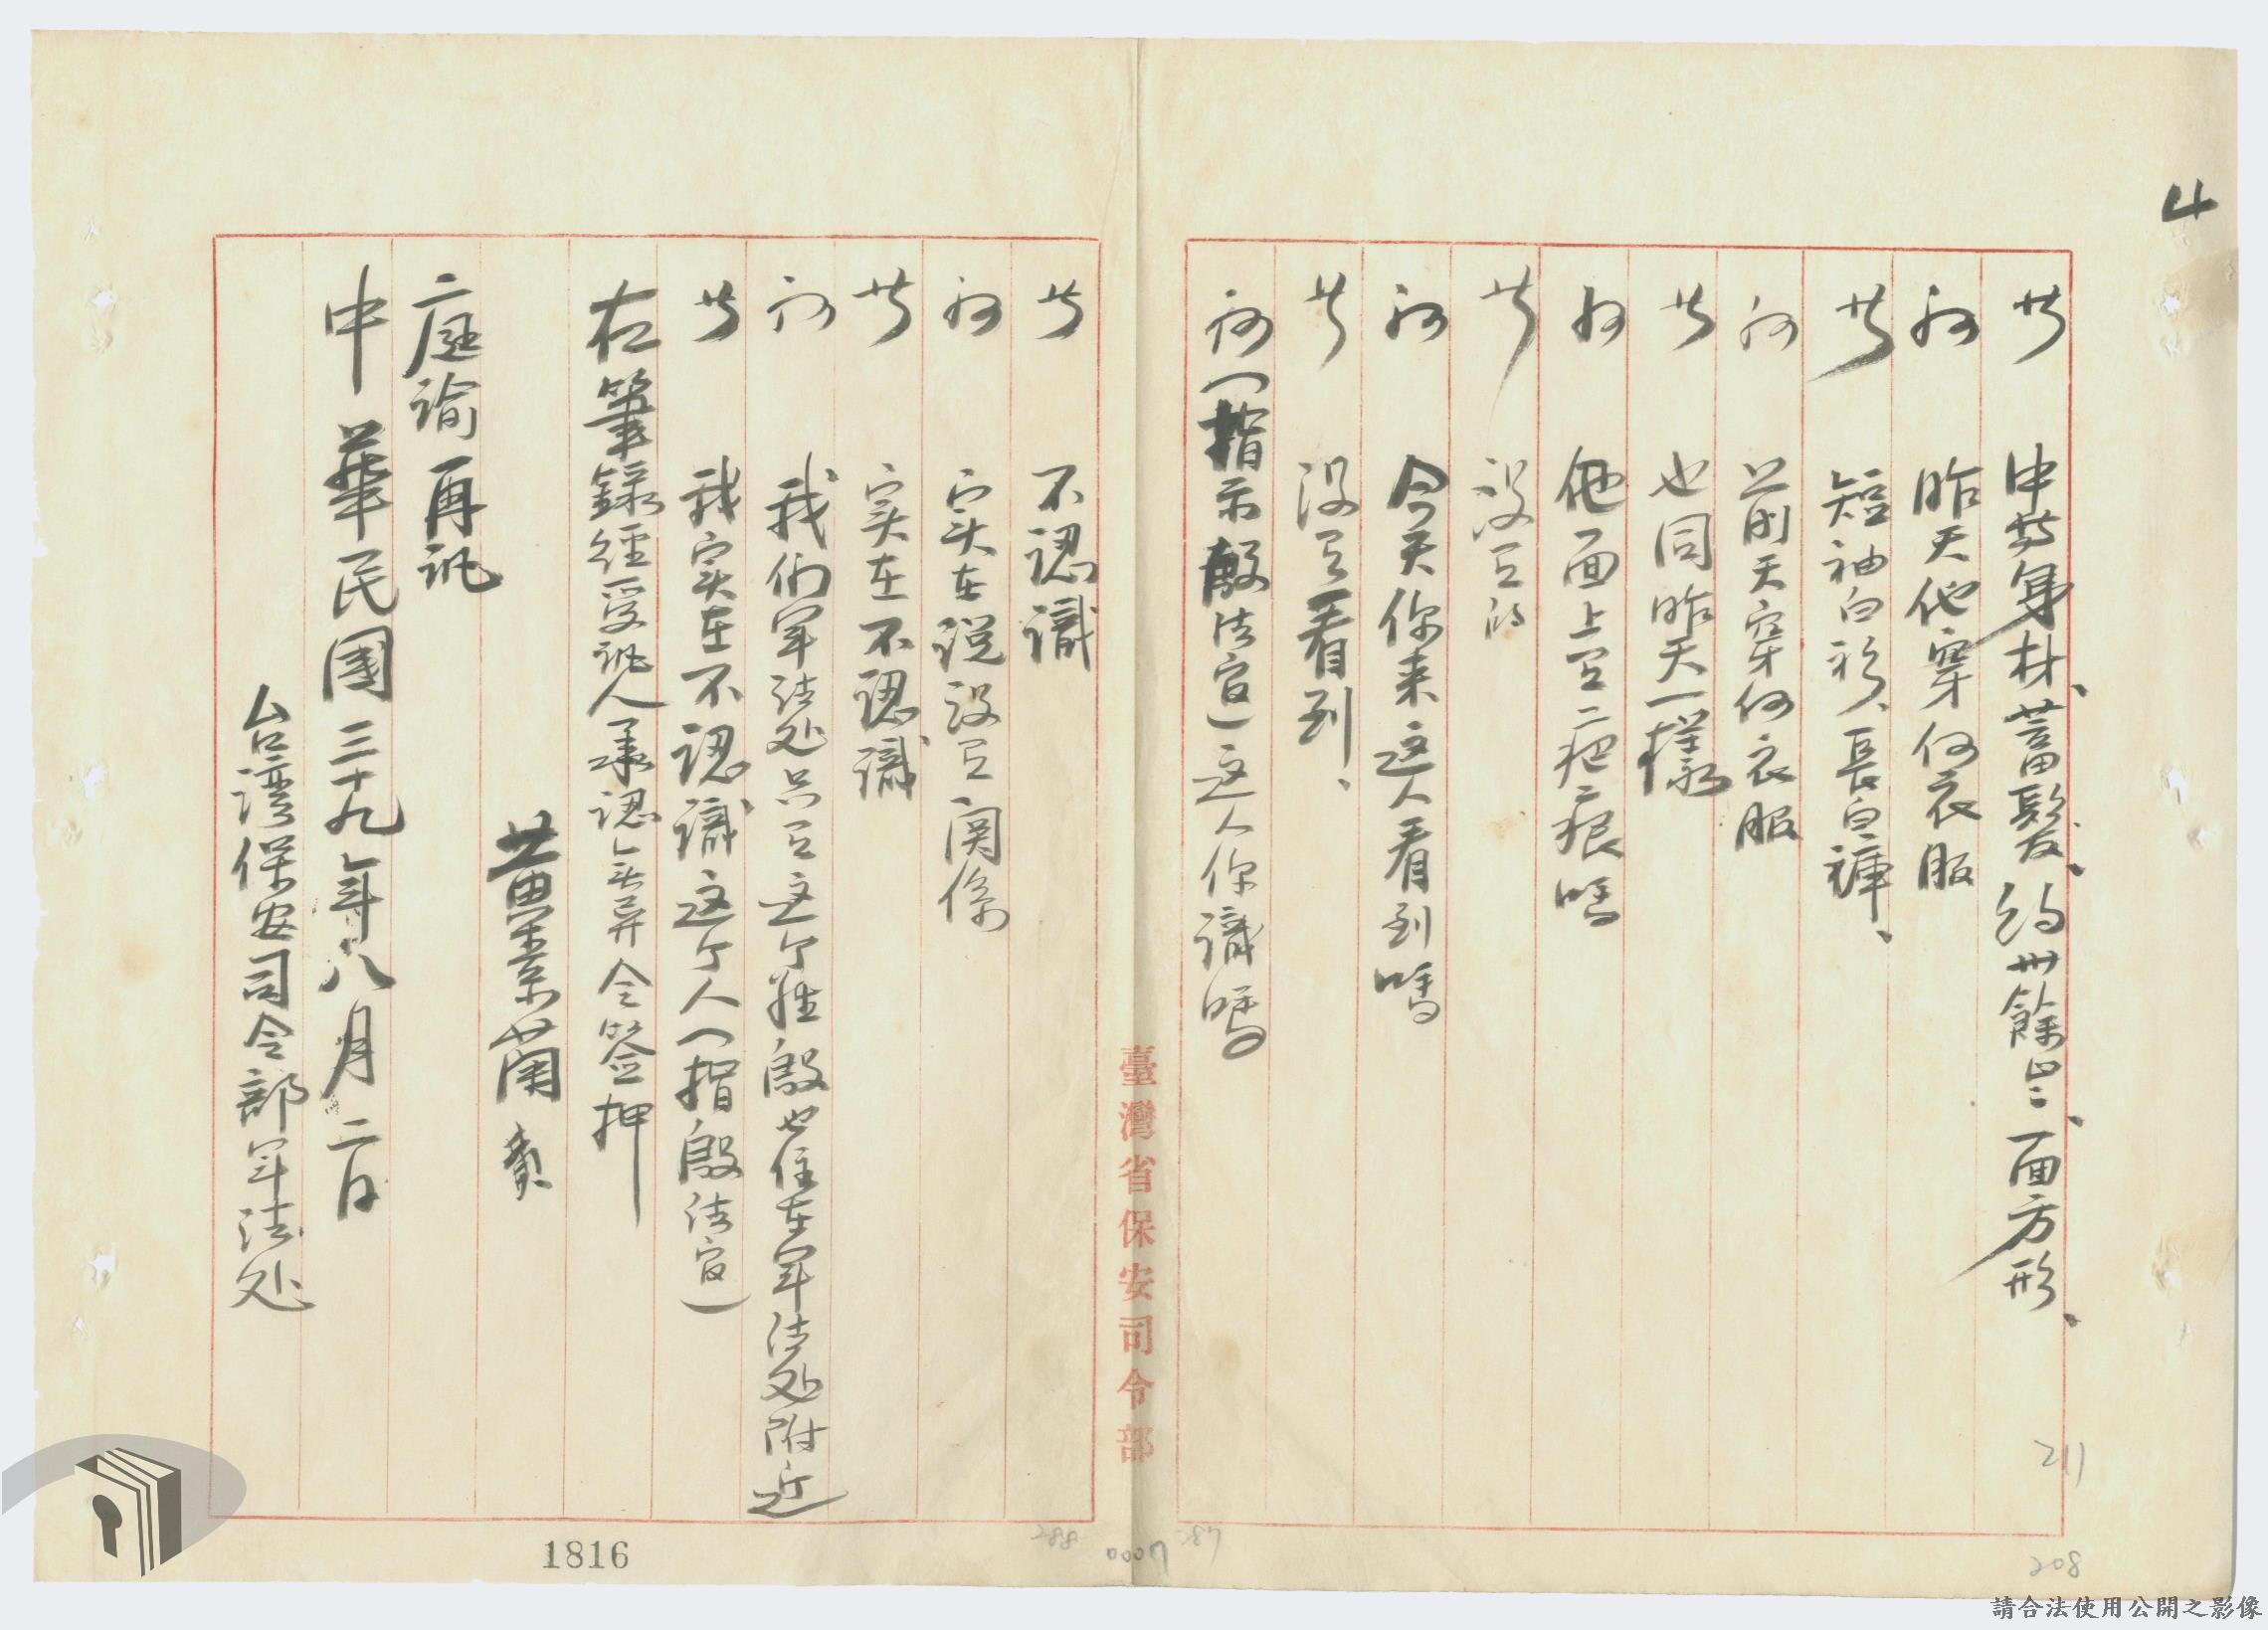 4
答 中等身材、蓄髮、約卅餘歲、面方形、
問 昨天他穿何衣服
答 短袖白衫、長白褲、
問 前天穿何衣服
答 也同昨天一樣
問 他面上有疤痕嗎
答 沒有的
問 今天你来這人看到嗎
答 沒有看到、
問 (指示殷法官)这人你識嗎
答 不認識
問 实在說没有関係
答 实在不認識
問 我们軍法处只有这个姓殷也住在軍法处附近
答 我实在不認識这个人(指殷法官)
右筆録経受訊人承認無異令簽押
黄素蘭
庭諭再訊
中華民國三十九年八月二日
台湾保安司令部軍法处
臺灣省保安司令部
211
208
287
0007
288
1816
請合法使用公開之影像